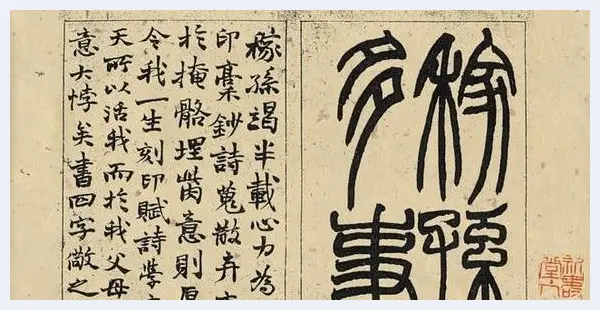 稼孫
多事
稼孫竭半載心力為
印稾鈔詩蒐散弃
於掩骼埋胔意則厚
令我一生刻印賦詩學
天所以活我而於我父母
意大悖矣書四字儆之